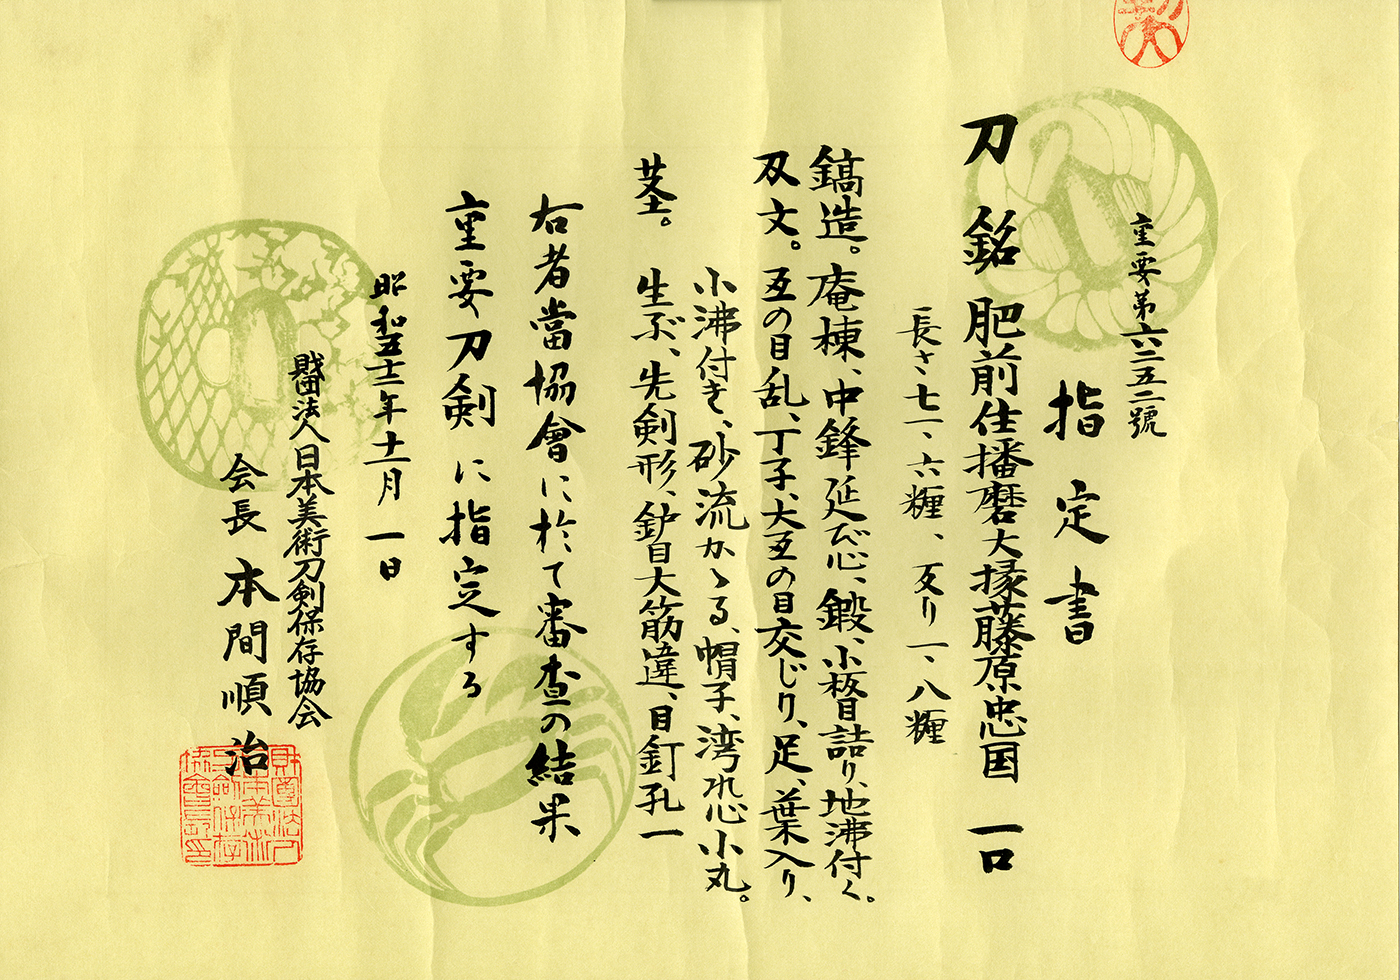 重要第六二五二號
指定書
刀 銘 肥前住播磨大掾藤原忠国 一口
長さ七一、六糎、反り一、八糎
鎬造。庵棟、中鋒延び心、鍛、小板目詰り、地沸付く。
刄文。互の目乱、丁子、大互の目交じり、足、葉入り、
小沸付き、砂流かゝる、帽子、湾れ心小丸。
茎。 生ぶ、先剣形、鈩目大筋違、目釘孔一
右者當協會に於て審査の結果
重要刀剣に指定する
昭和五十二年十一月一日
財団法人日本美術刀剣保存協会
会長 本間順治